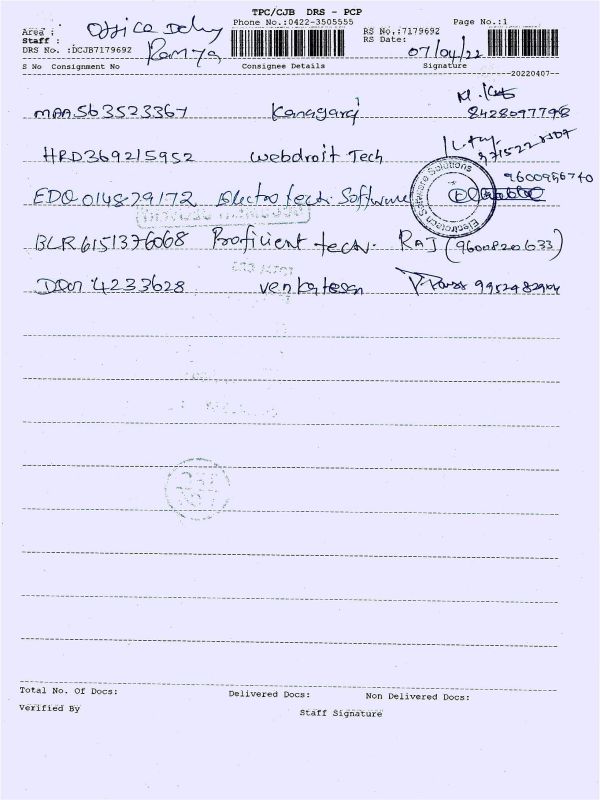 TPC/CJB DRS - PCP
Area : Office Delvy Phone No.:0422-3505555 RS No.:7179692 Page No.:1
Staff : Ramya RS Date: 07/04/22
DRS No. :DCJB7179692
S No Consignment No Consignee Details Signature
--20220407--
MAA563523367 Kanagaraj 8428097798
HRD369215952 Webdroit Tech
EDQ014879172 Electro tech. Software 9600956740
Electrotech Software Solutions
BLR6151376068 Proficient tech. RAJ (9600820633)
4233628 Venkatesan
Total No. Of Docs: Delivered Docs: Non Delivered Docs:
Verified By Staff Signature